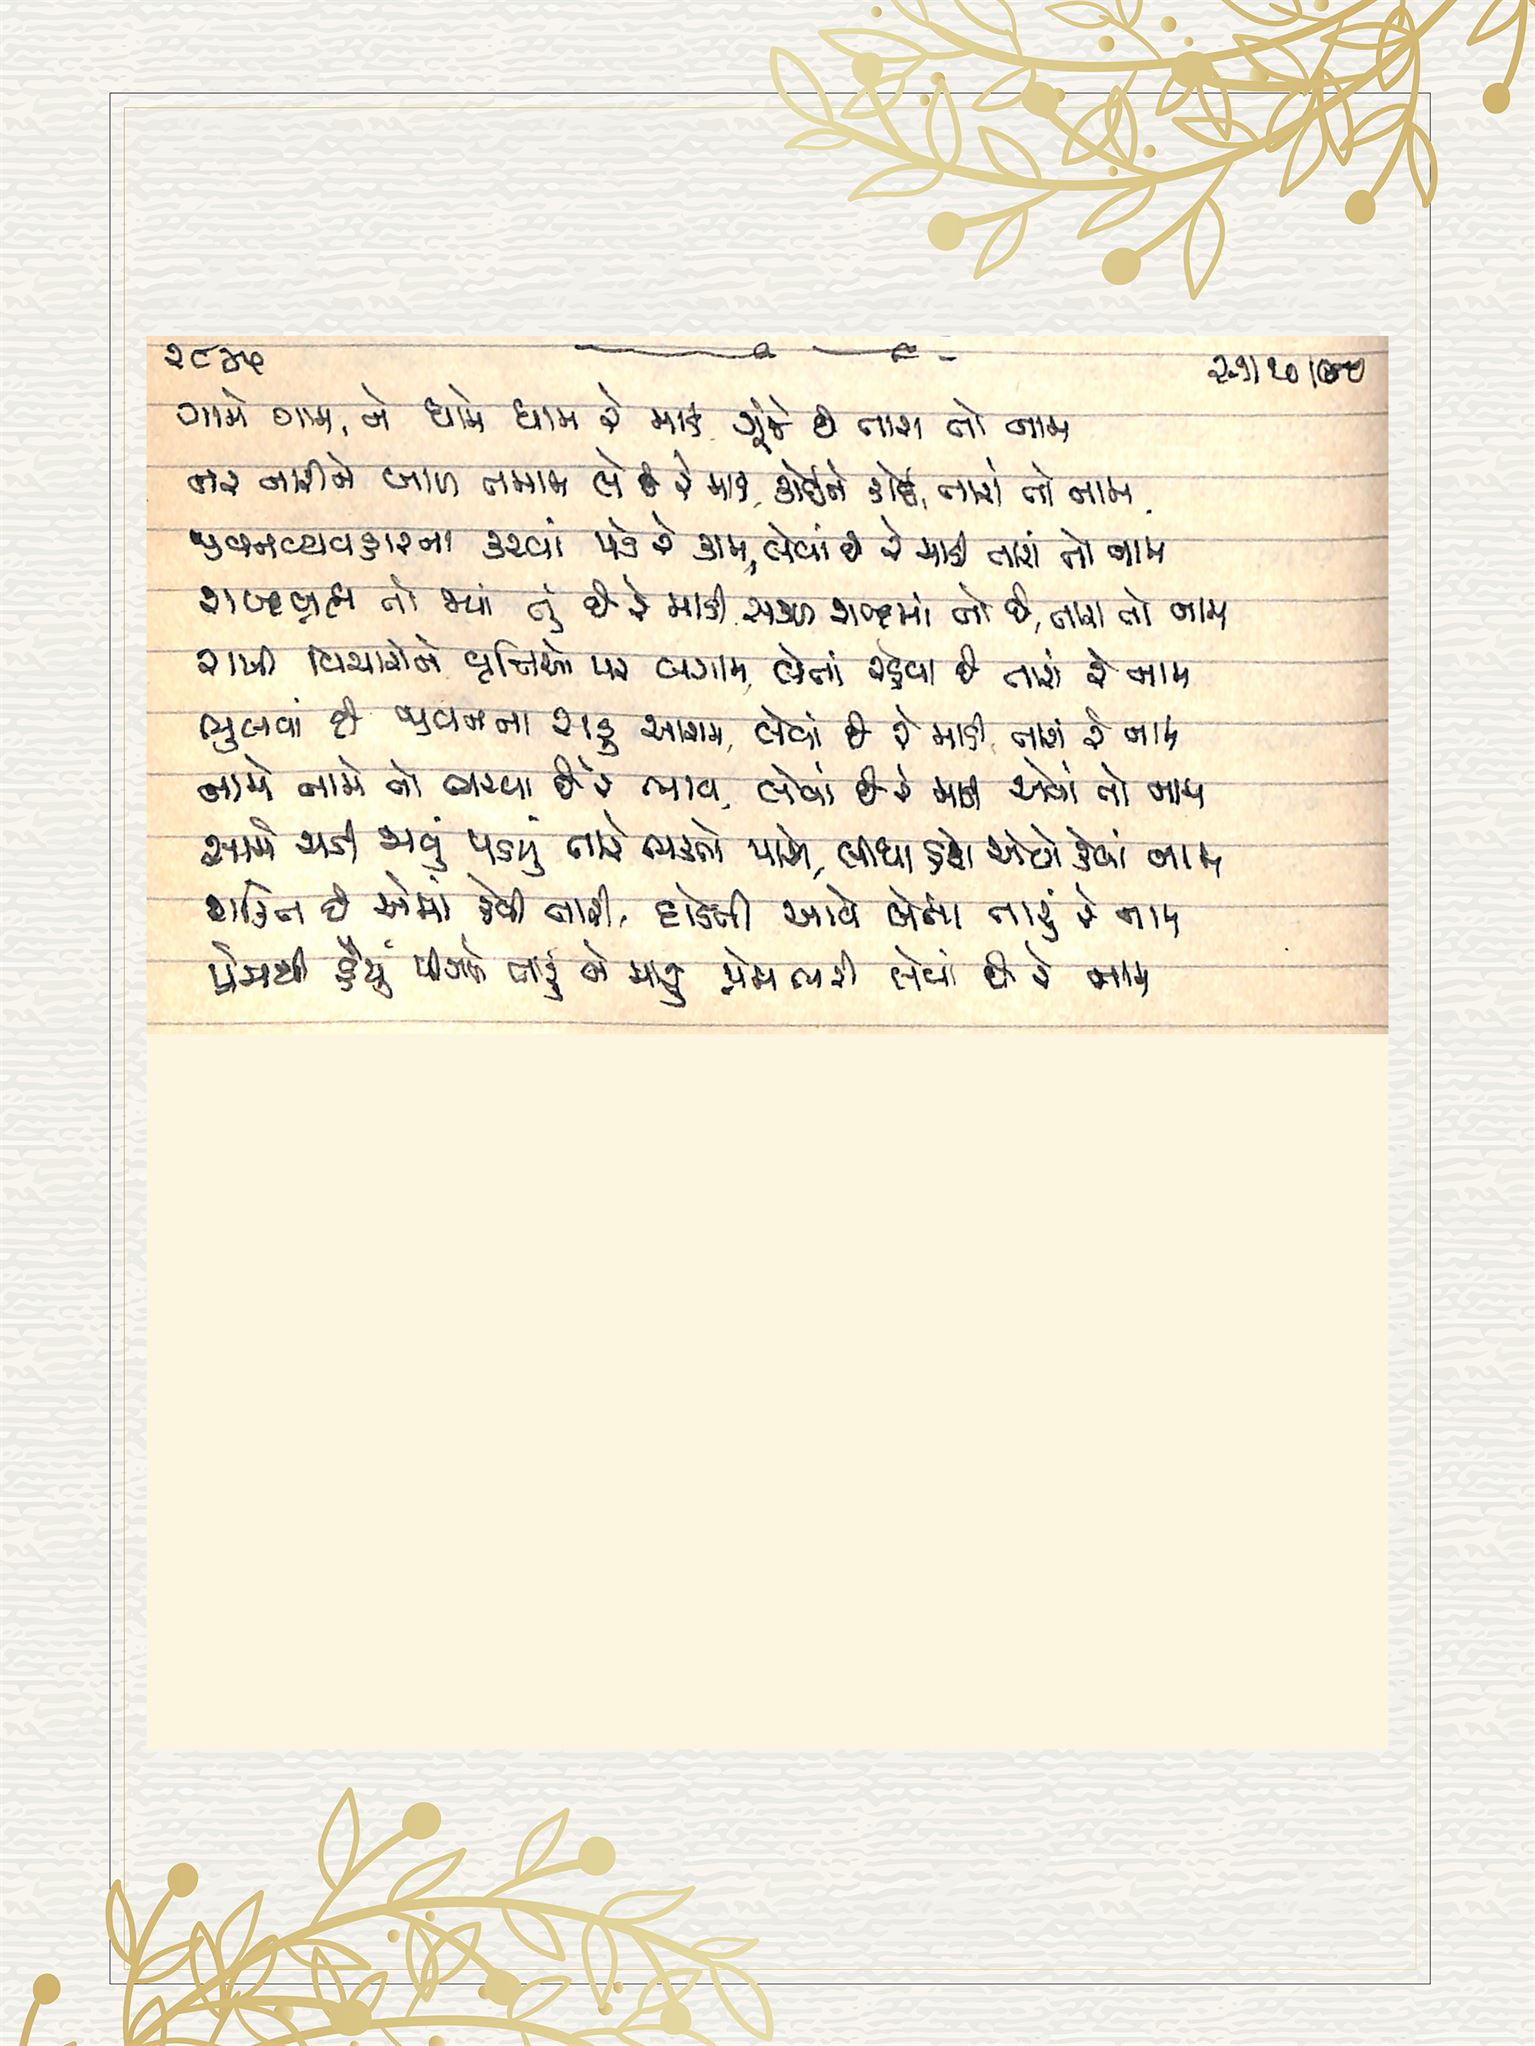 ગામે ગામ, ને ધામે ધામ રે માડી ગૂંજે છે તારા તો નામ
નર નારીને બાળ તમામ લે છે રે માડી, કોઈને કોઈ, તારાં તો નામ
જીવનવ્યવહારના કરવાં પડે રે કામ, લેવાં છે રે માડી તારાં તો નામ
શબ્દબ્રહ્મ તો જ્યાં તું છે રે માડી સકળ શબ્દમાં તો છે, તારા તો નામ
રાખી વિચારોને વૃત્તિઓ પર લગામ, લેતાં રહેવા છે તારાં રે નામ
ભુલવાં છે જીવનના સહુ આરામ, લેવાં છે રે માડી તારાં રે નામ
નામે નામે તો ભરવા છે રે ભાવ, લેવાં છે રે માડી એવાં તો નામ
સામે ચડી આવવું પડયું તારે ભક્તો પાસે, લીધા હશે એણે કેવાં નામ
શક્તિ છે એમાં કેવી તારી, દોડતી આવે લેતાં તારું રે નામ
પ્રેમથી હૈયું પીગળે તારું ને મારું પ્રેમ ભરી લેવાં છે રે નામ